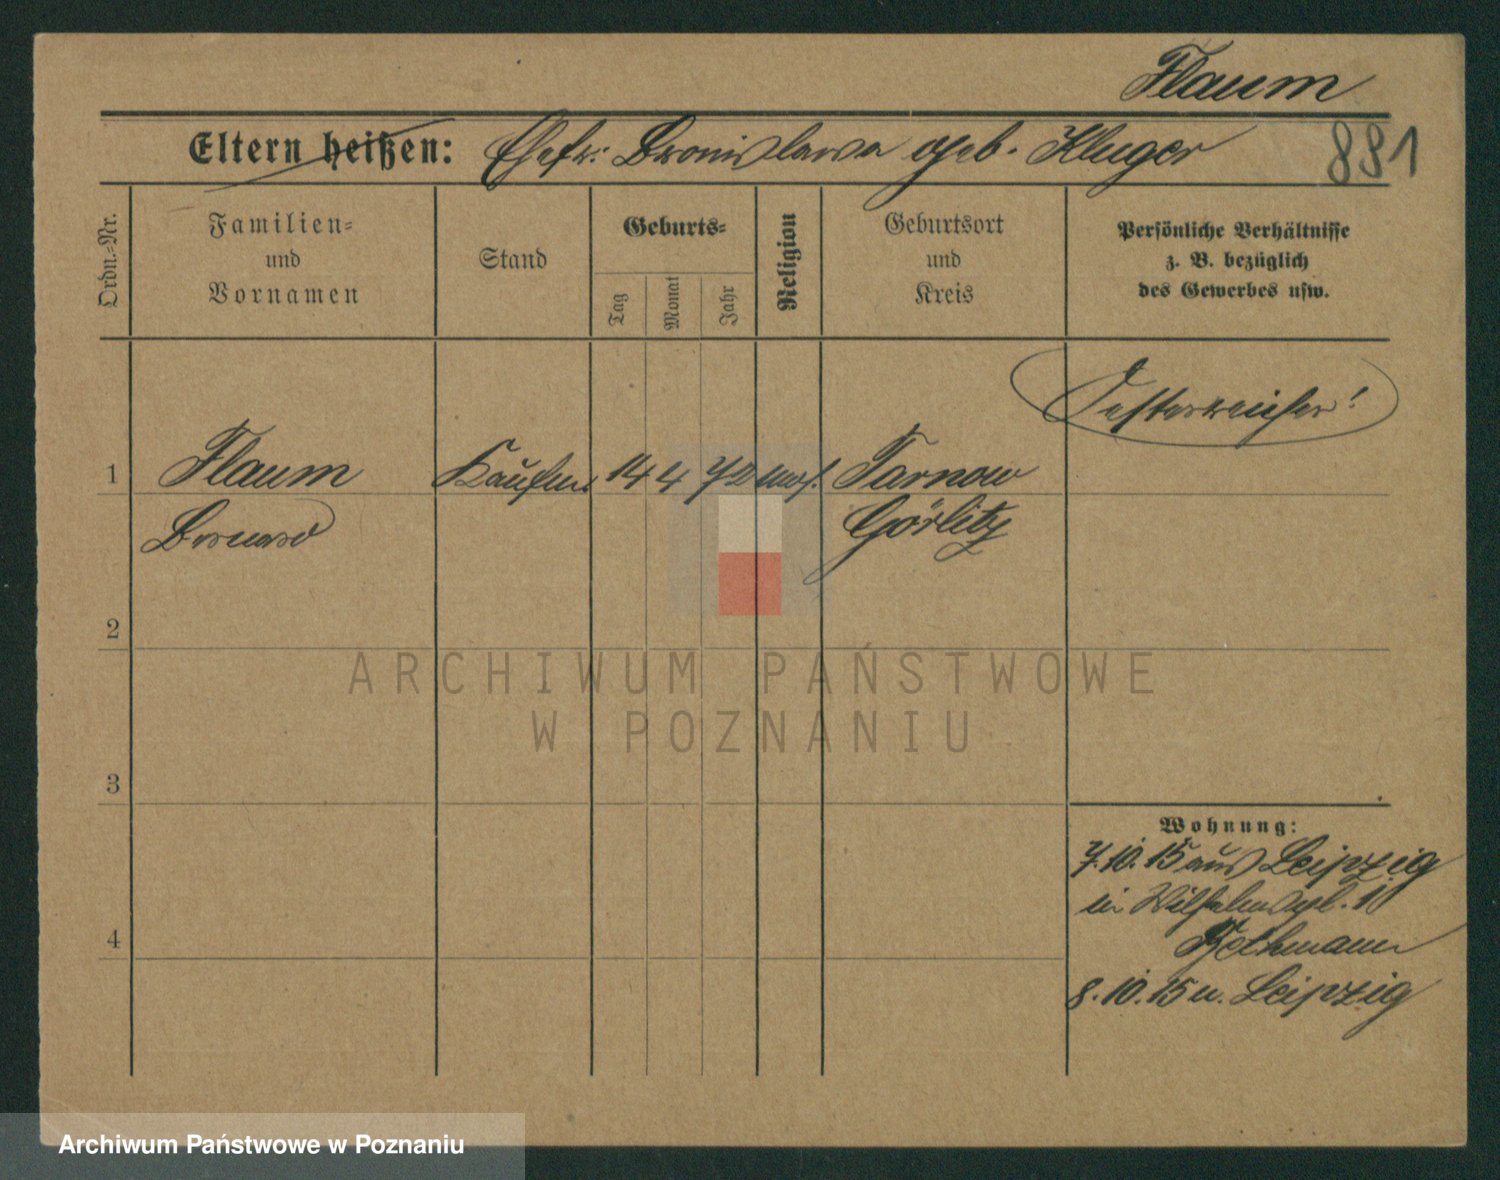 Flaum
Eltern heißen: Ehefr: Bronislawa geb. Kluger
881
Ordn.-Nr.
Familien-
und
Vornamen
Stand
Geburts-
Tag
Monat
Jahr
Religion
Geburtsort
und
Kreis
Persönliche Verhältnisse
z. B. bezüglich
des Gewerbes usw.
Oesterreicher!
1 Flaum Kaufm. 14 4 72 mos. Tarnow
Bernard Görlitz
2
ARCHIWUM PAŃSTWOWE
W POZNANIU
3
Wohnung:
7.10.15 aus Leipzig
in Wilhelmspl. 1
Bethmann
4
8.10.15 n. Leipzig
Archiwum Państwowe w Poznaniu